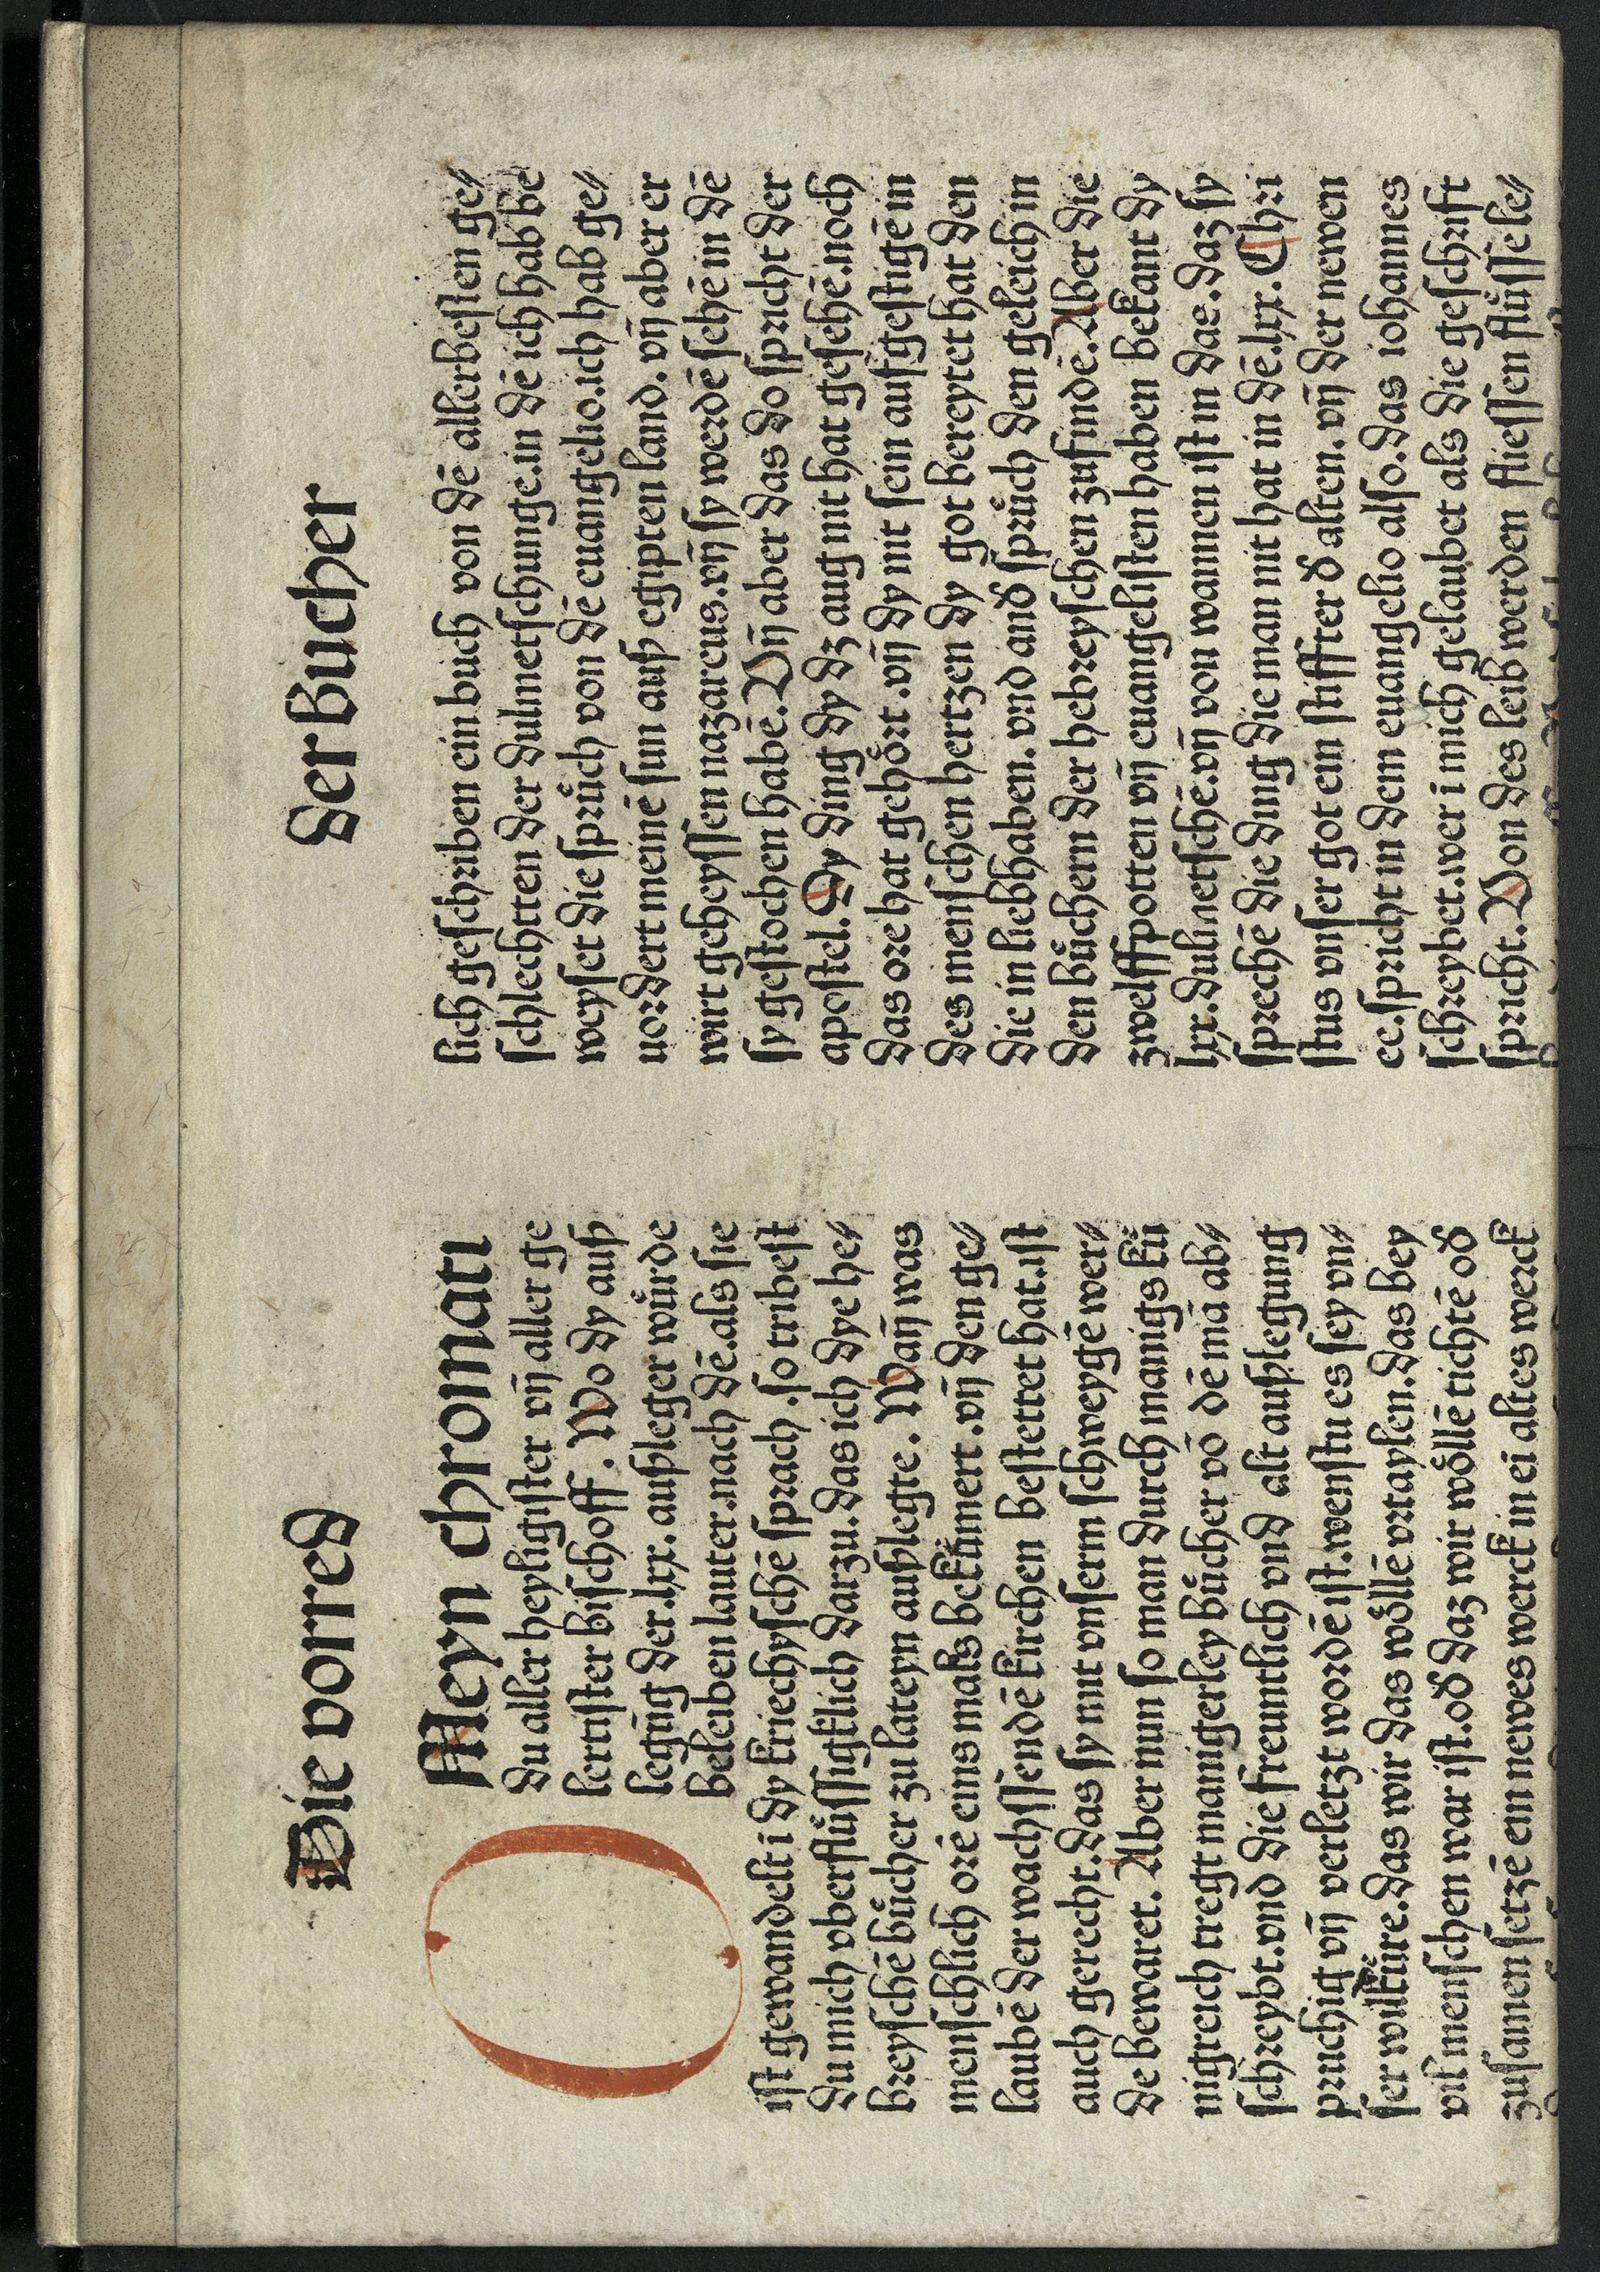 Die vorred
der Bucher
O Meyn chromati
du aller heyligister vñ aller ge
lertister bischoff. Wo dy auß
legūg der.lxx. außleger wůrde
beleiben lauter.nach dē.als sie
ist gewandelt ī dy kriechyschē sprach.so tribest
du mich vberflůssigklich darzu.das ich dye he⸗
breyschē bůcher zu lateyn außlegte. Wañ was
menschlich orē eins mals bekůmert.vñ den ge⸗
laubē der wachssendē kirchen bestettet hat.ist
auch gerecht.das sy mit vnserm schweygē wer⸗
de bewaret. Aber nun so man durch manigs kü
nigreich tregt manigerley bůcher vō dē mā ab⸗
schreybt.vnd die freuntlich vnd alt außlegung
pruchig vñ verletzt wordē ist.wenstu es sey vn⸗
ser wilkůre.das wir das wőllē vrtaylen.das bey
vil menschen war ist.od daz wir wőllē tichtē od
zusamen setzē ein newes werck in eī altes werck
lich geschriben ein bůch von dē allerbesten ge⸗
schlechtten der dulmetschunge.in dē ich hab be
weyset die sprůch von dē euangelio.ich hab ge⸗
uordert meinē sun auß egipten land.vñ aber er
wirt geheyssen nazareus.vñ sy werdē sehē in dē
sy gestochen habē.Vñ aber das do spricht der
apostel.Dy ding dy dz aug nit hat gesehē.noch
das ore hat gehőrt.vñ dy nit sein aufgestigē in
des menschen hertzen dy got bereytet hat den
die in liebhaben.vnd and sprůch den geleich in
den bůchern der hebreyschen zufindē.Aber die
zwelffpotten vñ euangelisten haben bekant dy
lxx.dulmetschē.vñ von wannen ist in das.daz sy
sprechē die ding die man nit hat in dē.lxx. Chri
stus vnser got ein stiffter d alten.vñ der newen
ee.spricht in dem euangelio also.das iohannes
schreybet.wer ī mich gelaubet als die geschrift
spricht.Von des leib werden fliessen flůsse le⸗